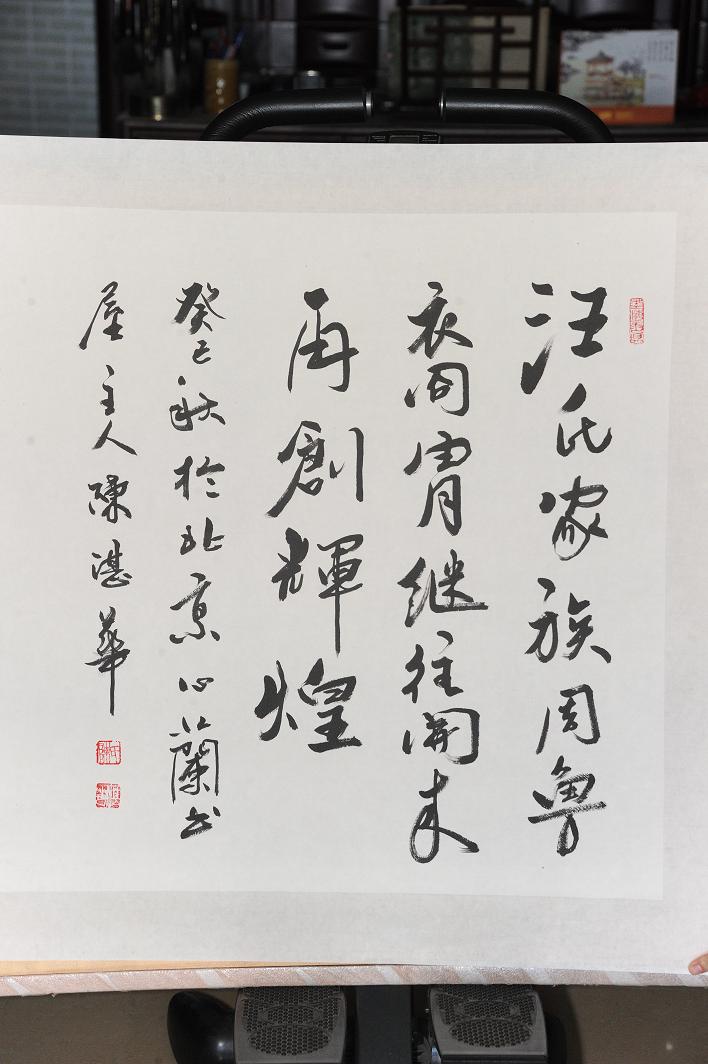 汪氏家族周鲁
裔胄继往開来
再創輝煌
癸巳秋於北京心蘭书
屋主人陳湛華